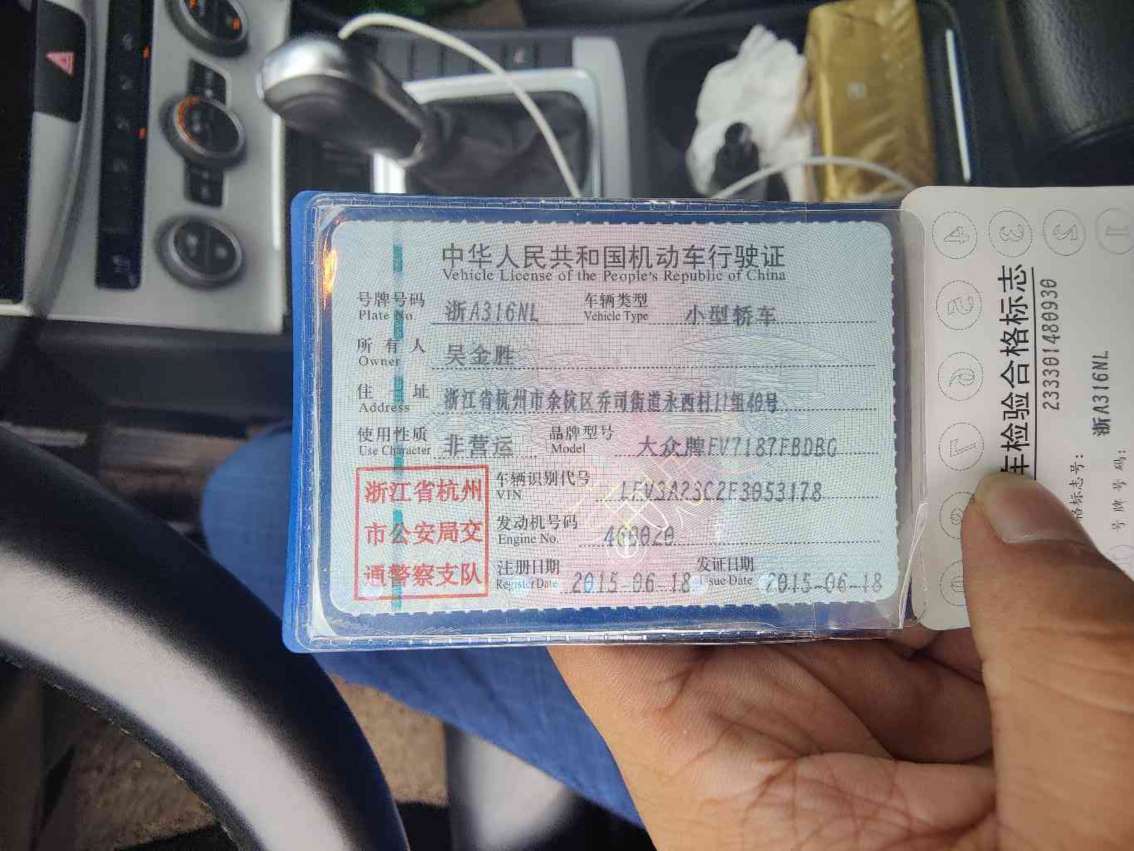 中华人民共和国机动车行驶证
Vehicle License of the People's Republic of China
号牌号码 浙A316NL 车辆类型 小型轿车
Plate No. Vehicle Type
所有人 吴金胜
Owner
住址 浙江省杭州市余杭区乔司街道永西村11组40号
Address
使用性质 非营运 品牌型号 大众牌FV7187FBDBG
Use Character Model
浙江省杭州
市公安局交
通警察支队
车辆识别代号 LFV3A23C2F3053178
VIN
发动机号码 460020
Engine No.
注册日期 2015-06-18 发证日期 2015-06-18
Register Date Issue Date
车检验合格标志
233301480930
格标志号:
浙A316NL
号牌号码:
1
2
3
4
5
6
7